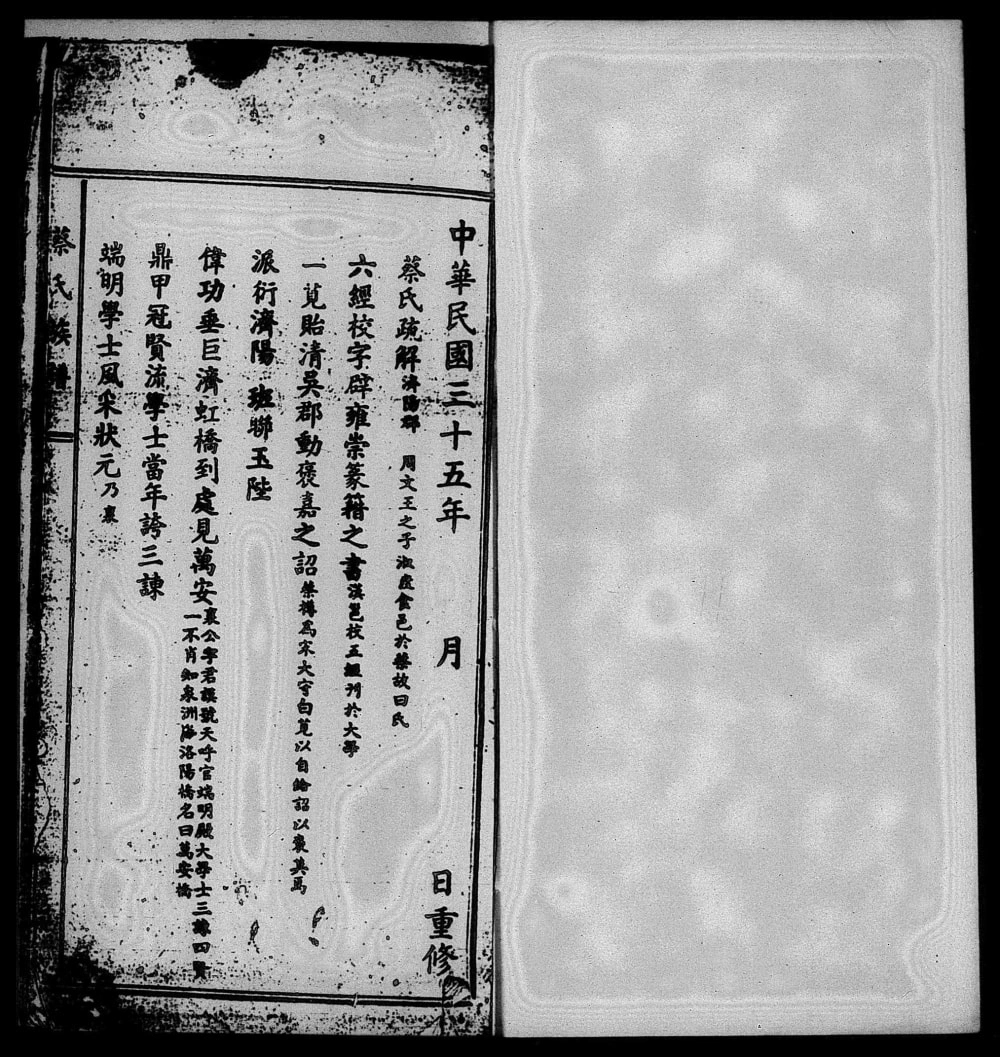 中華民國三十五年 月 日重修
蔡氏疏解濟陽郡 周文王之子淑度食邑於蔡故曰氏
六經校字辟雍崇篆籀之書漢邕校五經刊於大學
一莧貽清吳郡動褒嘉之詔蔡樽為宋大守白莧以自給詔以褒其焉
派衍濟陽 班聯玉陛
偉功垂巨濟虹橋到處見萬安襄公字君謨號天呼官端明殿大學士三諫四賢
一不肖知泉洲海洛陽橋名曰萬安橋
鼎甲冠賢流學士當年誇三諫
端明學士風采狀元乃襄
蔡氏族譜